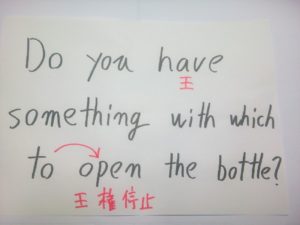 Do you have
王
something with which
to open the bottle?
王権停止